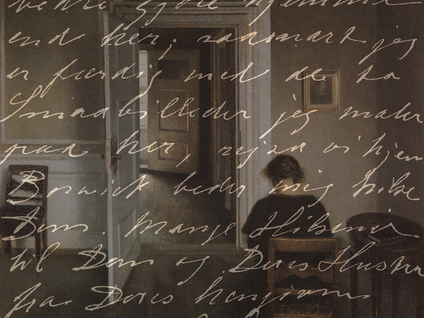 end her; saasnart jeg
er færdig med de to
Smaabilleder jeg maler
paa her, rejser vi hjem
beder mig hilse
Dem. Mange Hilsener
til Dem og Deres Hustru
fra Deres hengivne